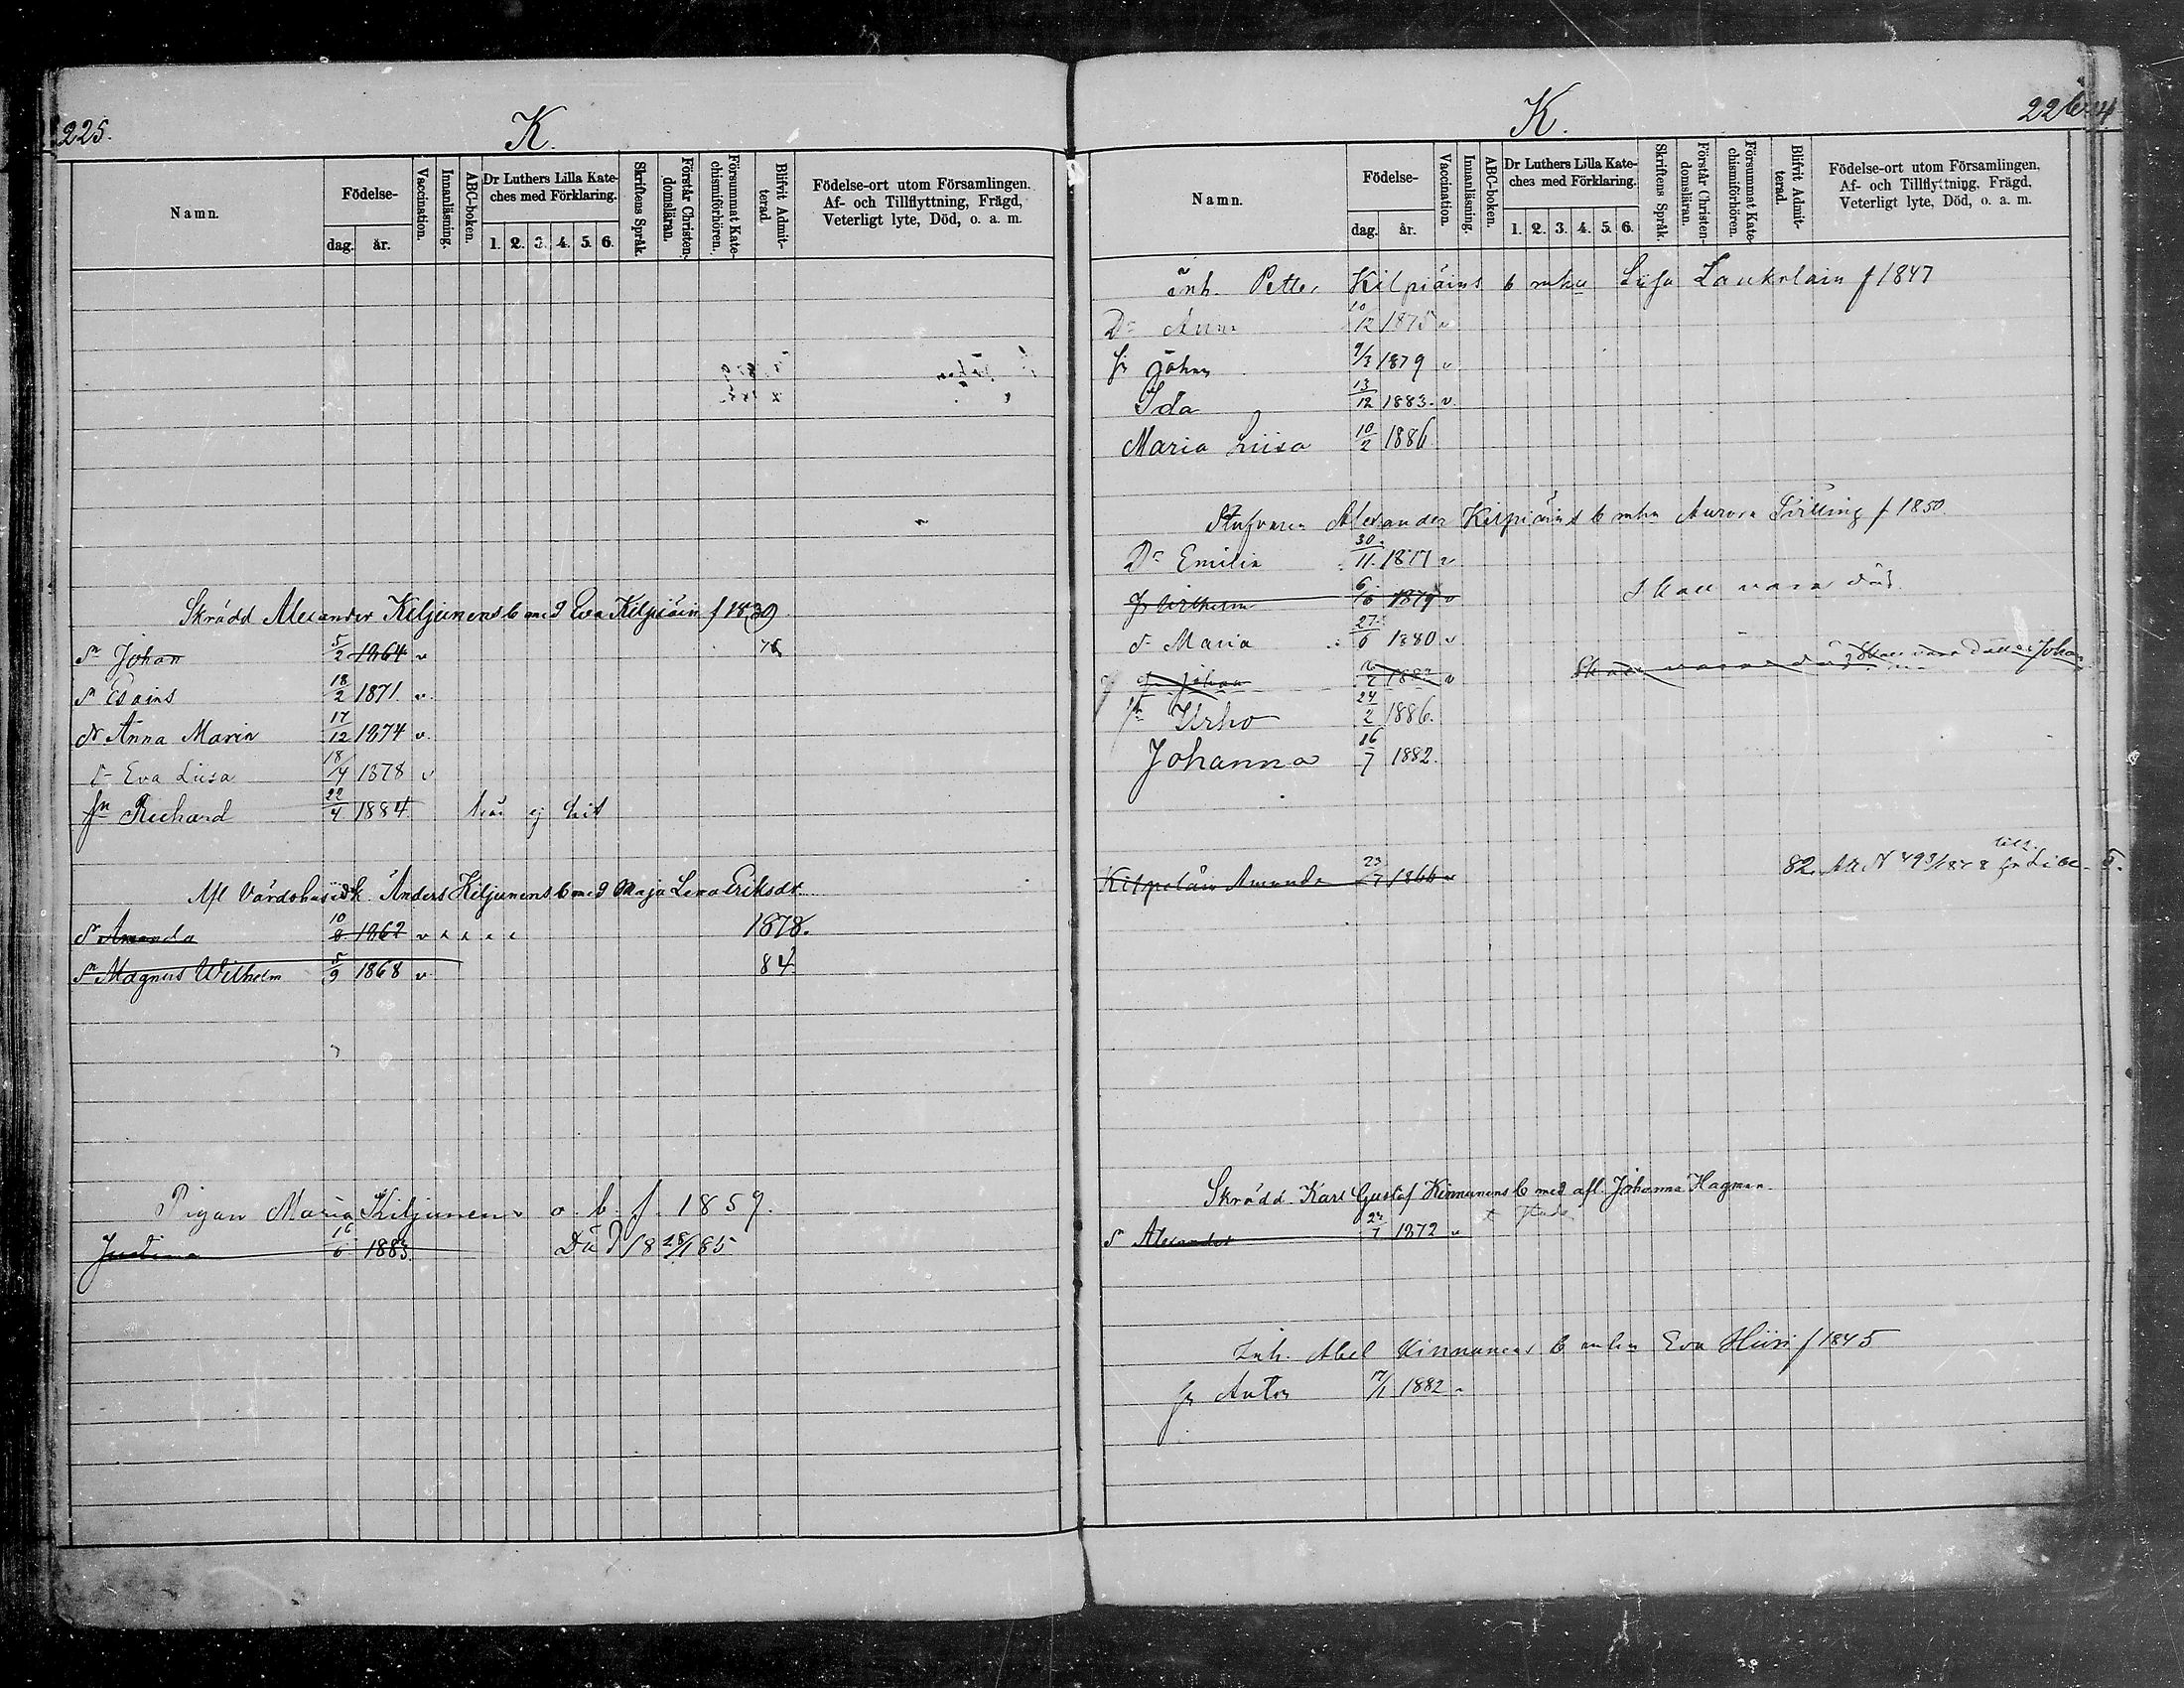 225.
K.
Namn.
Födelse-
dag.
år.
Vaccination.
Innanläsning.
ABC-boken.
Dr Luthers Lilla Kate-
ches med Förklaring.
1. 2. 3. 4. 5. 6.
Skriftens Språk.
Förstår Christen-
domsläran.
Försummat Kate-
chismiförhören.
Blifvit Admit-
terad.
Födelse-ort utom Församlingen.
Af- och Tillflyttning, Frägd,
Veterligt lyte, Död, o. a. m.
Skrädd Alexander Kiljunens b med Eva Kilpiäin f 1839
Sn Johan 5/2 1864 v 78
S Esaias 18/2 1871. v.
dr Anna Maria 17/12 1874 v.
d Eva Liisa 18/4 1878 v
fn Richard 22/4 1884 ej hit
Afl Värdshusidk. Anders Kiljunens b med Maja Lena Eriksdr.
dr Amanda 10/8 1862 v 1878.
Sn Magnus Wilhelm 5/9 1868 v 84
Pigan Maria Kiljunens o. b. f. 1859.
Justina 16/6 1883 Död 18 28/1 85
K.
226
Namn.
Födelse-
dag.
år.
Vaccination.
Innanläsning.
ABC-boken.
Dr Luthers Lilla Kate-
ches med Förklaring.
1. 2. 3. 4. 5. 6.
Skriftens Språk.
Förstår Christen-
domsläran.
Försummat Kate-
chismiförhören.
Blifvit Admit-
terad.
Födelse-ort utom Församlingen,
Af- och Tillflyttning, Frägd,
Veterligt lyte, Död, o. a. m.
Inh. Petter Kilpiäins b mhu Liisa Laukolain f 1847
Dr Anna 10/12 1875 v
fn Johan 9/3 1879 v
Ida 13/12 1883. v.
Maria Liisa 10/2 1886.
Alexander Kilpiäins b mhu Aurora f 1850.
Dr Emilia 30/11 1877 v
fn Wilhelm 6/10 1879 v Skall vara död.
d Maria 27/6 1880 v
fn Johan 1882 v Skall vara död Skall vara dotter Johan
fn Urho 24/2 1886.
Johanna 16/7 1882.
Kilpeläin Amanda 23/7 1866 v 82. Att N 493/1878 fr Libe
Skrädd. Karl Gustaf Kinnunens b med afl. Johanna Hagman.
S Alexander 1872 v
Inh. Abel Kinnunens b mhu Eva Hiiri f 1845
fn Anton 17/1 1882